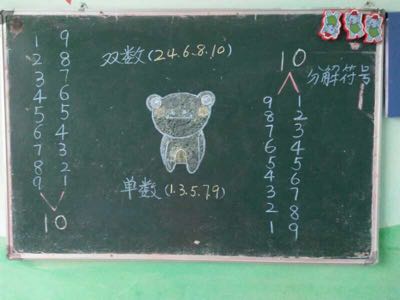 1 9
2 8
3 7
4 6
5 5
6 4
7 3
8 2
9 1
10
双数(2.4.6.8.10)
单数(1.3.5.7.9)
10
分解符号
9 1
8 2
7 3
6 4
5 5
4 6
3 7
2 8
1 9